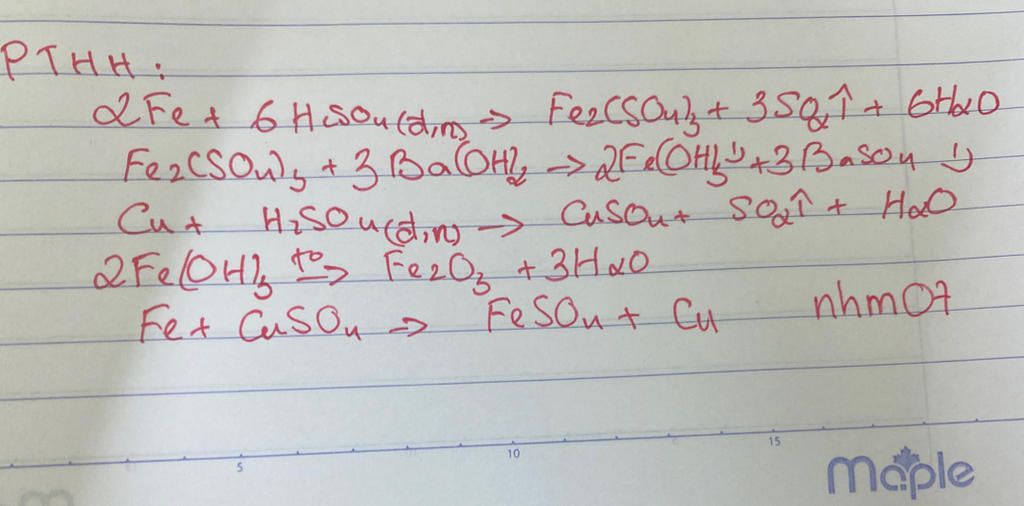 PTHH:
2Fe + 6H2SO4(đ,n) → Fe2(SO4)3 + 3SO2↑ + 6H2O
Fe2(SO4)3 + 3Ba(OH)2 → 2Fe(OH)3↓ + 3BaSO4↓
Cu + H2SO4(đ,n) → CuSO4 + SO2↑ + H2O
2Fe(OH)3 t° → Fe2O3 + 3H2O
Fe + CuSO4 → FeSO4 + Cu nhm07
5 10 15
maple